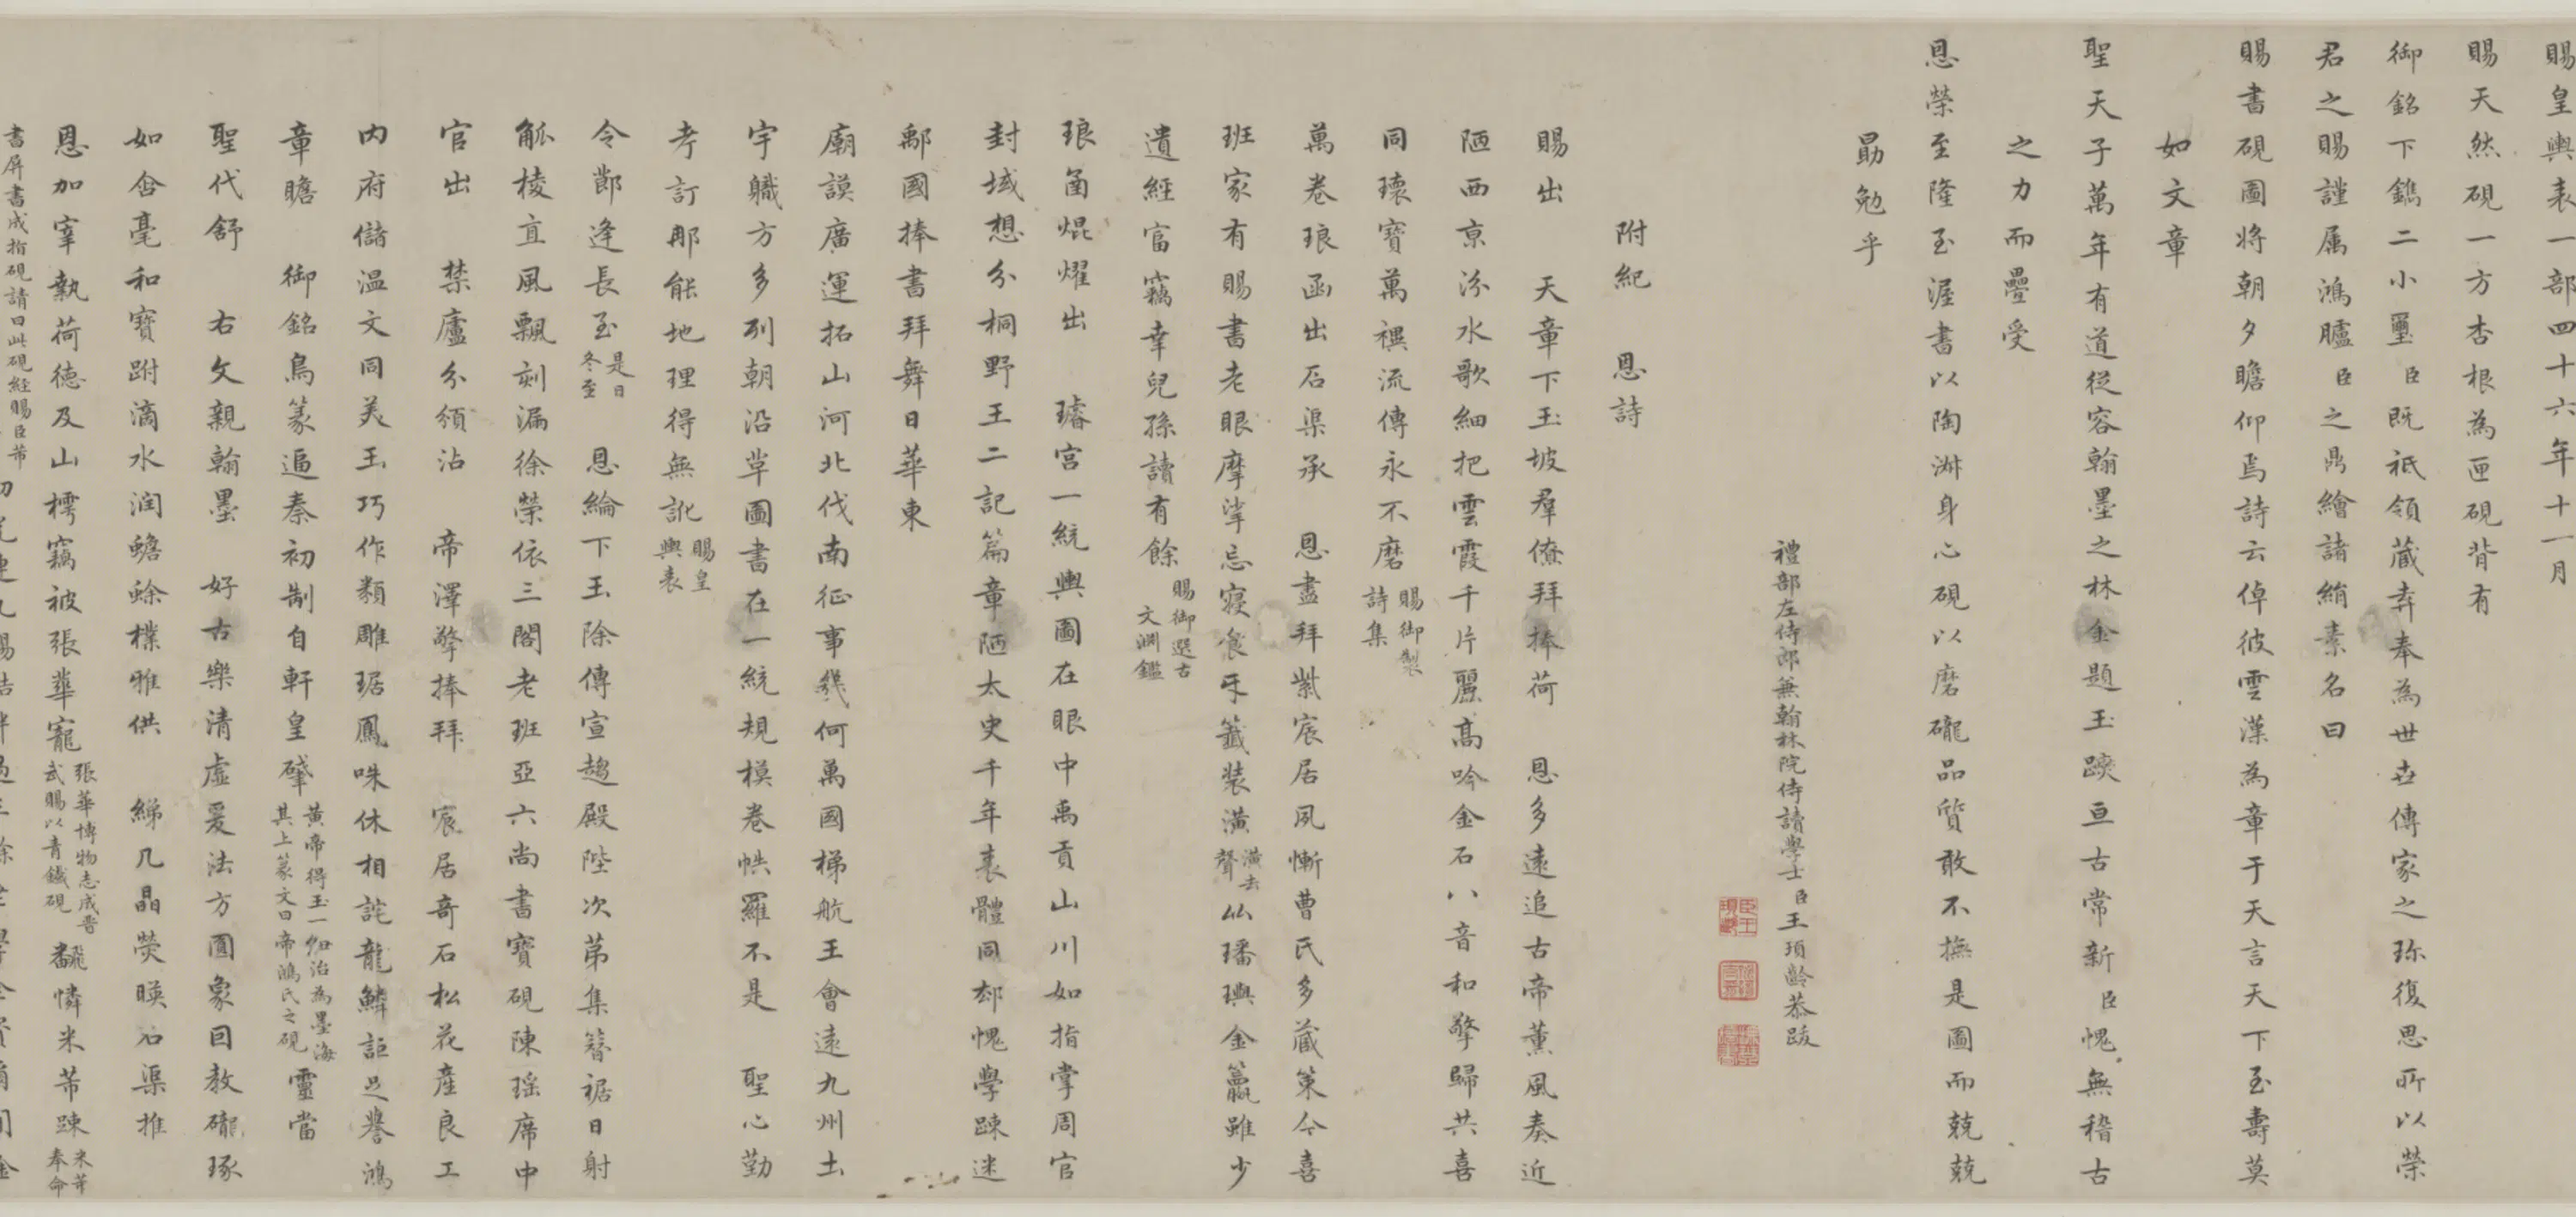 賜皇輿表一部四十六年十一月
賜天然硯一方杏根為匣硯背有
御銘下鐫二小璽臣既祗領蔵弆奉為世世傳家之珎復思所以榮
君之賜謹属鴻臚臣之鼎繪諸絹素名曰
賜書硯圖将朝夕瞻仰焉詩云倬彼雲漢為章于天言天下至壽莫
如文章
聖天子萬年有道從容翰墨之林金題玉躞亘古常新臣愧無稽古
之力而疊受
恩榮至隆至渥書以陶淑身心硯以磨礲品質敢不撫是圖而兢兢
勗勉乎
禮部左侍郎兼翰林院侍讀學士臣王頊齡恭跋
附紀恩詩
賜出天章下玉坡羣僚拜捧荷恩多遠追古帝薰風奏近
陋西京汾水歌細把雲霞千片麗高吟金石八音和擎歸共喜
同瓌寶萬禩流傳永不磨賜御製詩集
萬卷琅函出石渠承恩盡拜紫宸居夙慚曹氏多蔵䇿今喜
班家有賜書老眼摩挲忘寢食牙籖装潢潢去聲似璠璵金籯雖少
遺經富竊幸兒孫讀有餘賜御選古文淵鑑
琅凾焜燿出璿宮一統輿圖在眼中禹貢山川如指掌周官
封域想分桐野王二記篇章陋太史千年表體同却愧學踈迷
鄢國捧書拜舞日華東
廟謨廣運拓山河北伐南征事幾何萬國梯航王會遠九州土
宇軄方多列朝沿草圖書在一統規模卷帙羅不是聖心勤
考訂那能地理得無訛賜皇輿表
令節逢長至是日冬至恩綸下玉除傳宣趨殿陛次苐集簪裾日射
觚棱直風飄刻漏徐榮依三閣老班亞六尚書寶硯陳瑶席中
官出禁廬分頒沾帝澤擎捧拜宸居奇石松花產良工
内府儲温文同美玉巧作類雕琚鳳咮休相詫龍鱗詎足譽鴻
章瞻御銘鳥篆逼秦初制自軒皇肇黄帝得玉一紐治為墨海其上篆文曰帝鴻氏之硯靈當
聖代舒右文親翰墨好古樂清虛爰法方圓象回教礲琢
如含毫和寶跗滴水润蟾蜍樸雅供綈几晶熒暎石渠推
恩加宰執荷德及山樗竊被張華寵張華博物志成晋武賜以青鐵硯飜憐米芾踈米芾奉命
書屏書成指硯請曰此硯経賜臣芾